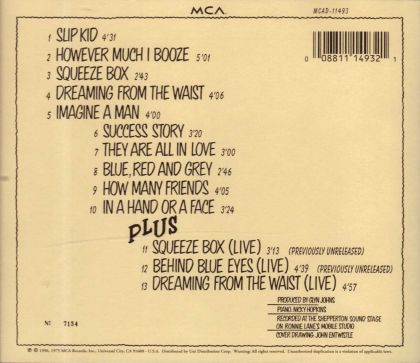 MCA
MCAD-11493
1 SLIP KID 4'31
2 HOWEVER MUCH I BOOZE 5'01
3 SQUEEZE BOX 2'43
4 DREAMING FROM THE WAIST 4'06
5 IMAGINE A MAN 4'00
6 SUCCESS STORY 3'20
7 THEY ARE ALL IN LOVE 3'00
8 BLUE, RED AND GREY 2'46
9 HOW MANY FRIENDS 4'05
10 IN A HAND OR A FACE 3'24
0 08811 14932 1
PLUS
11 SQUEEZE BOX (LIVE) 3'13 (PREVIOUSLY UNRELEASED)
12 BEHIND BLUE EYES (LIVE) 4'39 (PREVIOUSLY UNRELEASED)
13 DREAMING FROM THE WAIST (LIVE) 4'57
PRODUCED BY GLYN JOHNS
PIANO: NICKY HOPKINS
RECORDED AT THE SHEPPERTON SOUND STAGE
ON RONNIE LANE'S MOBILE STUDIO
COVER DRAWING JOHN ENTWISTLE
Nº 7134
℗ © 1996, 1975 MCA Records, Inc., Universal City, CA 91608 - U.S.A. Distributed by Uni Distribution Corp. Warning: All rights reserved. Unauthorized duplication is a violation of applicable laws.